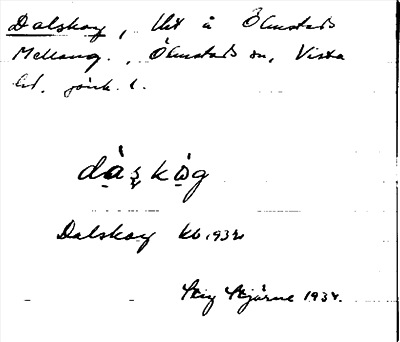 Dalskog, Uht å Ölmstads
Mellang., Ölmstads sn, Vista
hd. jönk. l.
dàʂkɷg
Dalskog kb 1932
Stig Stjärne 1932.